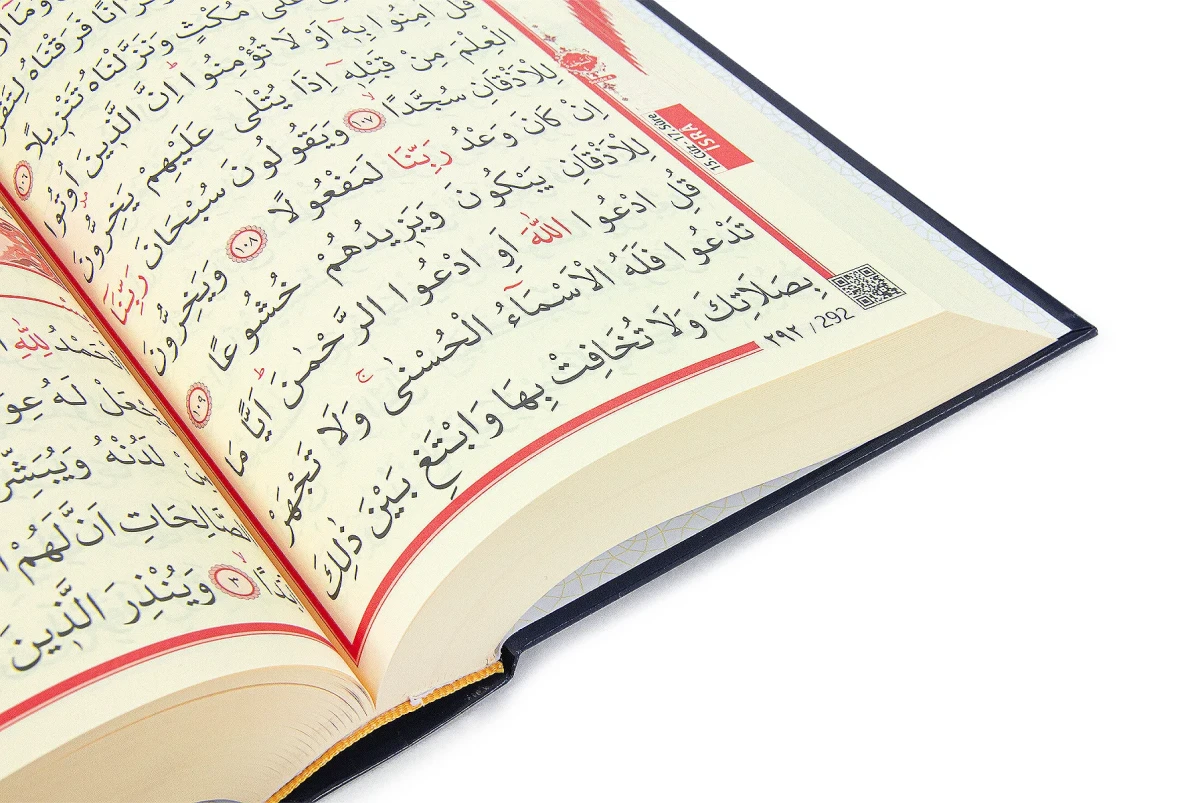 فَرَقْنَاهُ لِتَقْرَ
عَلٰى مُكْثٍ وَنَزَّلْنَاهُ تَنْزٖيلًا ١٠٦
قُلْ اٰمِنُوا بِهٖٓ اَوْ لَا تُؤْمِنُوا اِنَّ الَّذٖينَ اُوتُوا
الْعِلْمَ مِنْ قَبْلِهٖٓ اِذَا يُتْلٰى عَلَيْهِمْ يَخِرُّونَ
لِلْاَذْقَانِ سُجَّدًا ١٠٧ وَيَقُولُونَ سُبْحَانَ رَبِّنَٓا
اِنْ كَانَ وَعْدُ رَبِّنَا لَمَفْعُولًا ١٠٨ وَيَخِرُّونَ
لِلْاَذْقَانِ يَبْكُونَ وَيَزٖيدُهُمْ خُشُوعًا ١٠٩
قُلِ ادْعُوا اللّٰهَ اَوِ ادْعُوا الرَّحْمٰنَ اَيًّا مَا
تَدْعُوا فَلَهُ الْاَسْمَٓاءُ الْحُسْنٰى وَلَا تَجْهَرْ
بِصَلَاتِكَ وَلَا تُخَافِتْ بِهَا وَابْتَغِ بَيْنَ ذٰلِكَ
15. Cüz - 17. Sûre
İSRA
٢٩٢ / 292
لِلّٰهِ
لَهُ عِوَ
لَدُنْهُ وَيُبَشِّرَ
الصَّالِحَاتِ اَنَّ لَهُمْ
٣ وَيُنْذِرَ الَّذٖينَ